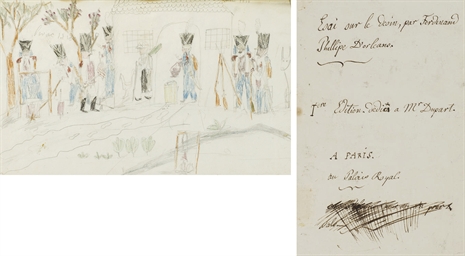 Esai sur le Desin, par Ferdinand
Phillipe D'orleans.
1ère Edition dédié a Mr Dupart.
A PARIS.
au Palais Royal.